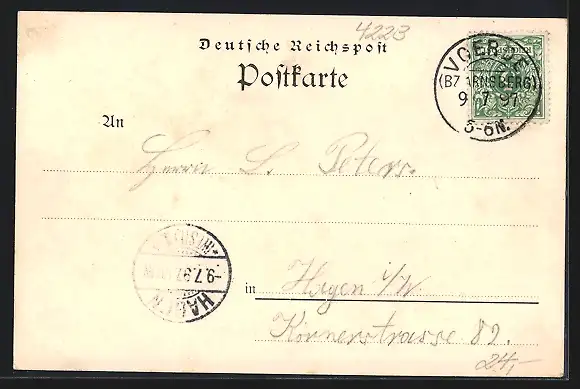 4223
Deutsche Reichspost
Postkarte
VOERDE
(BZ ARNSBERG)
9 7 97
5-6N.
An
Herrn L. Peters.
-9.7.97
HAGEN
in Hagen i/W.
Körnerstrasse 82.
24,-